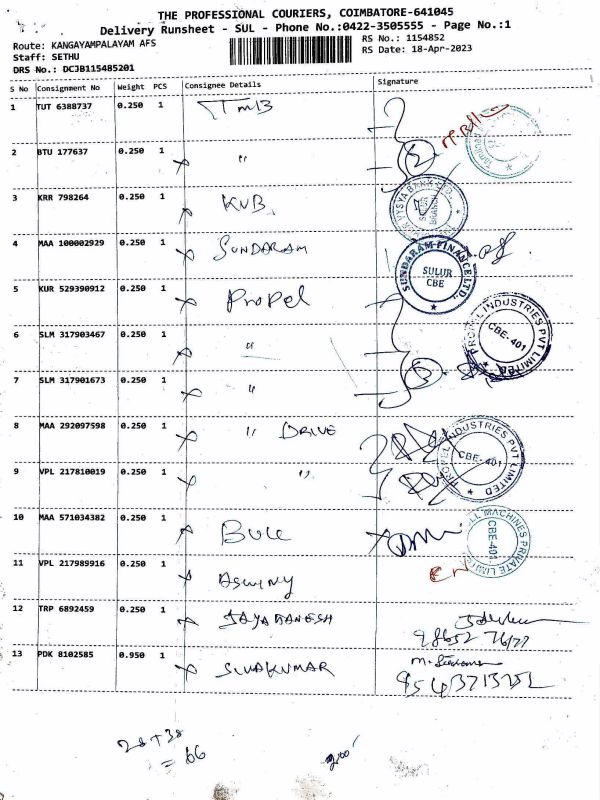 THE PROFESSIONAL COURIERS, COIMBATORE-641045
Delivery Runsheet - SUL - Phone No.:0422-3505555 - Page No.:1
Route: KANGAYAMPALAYAM AFS
RS No.: 1154852
Staff: SETHU
RS Date: 18-Apr-2023
DRS No.: DCJB115485201
S No Consignment No Weight PCS Consignee Details Signature
1 TUT 6388737 0.250 1 TMB
2 BTU 177637 0.250 1 "
3 KRR 798264 0.250 1 KVB
4 MAA 100002929 0.250 1 SUNDARAM
SUNDARAM FINANCE LTD., SULUR CBE
5 KUR 529390912 0.250 1 Propel
6 SLM 317903467 0.250 1 "
PROPEL INDUSTRIES PVT LIMITED CBE-401
7 SLM 317901673 0.250 1 "
8 MAA 292097598 0.250 1 " DRIVE
9 VPL 217810019 0.250 1 "
PROPEL INDUSTRIES PVT LIMITED CBE-401
10 MAA 571034382 0.250 1 Bull
BULL MACHINES PRIVATE LIMITED CBE-401
11 VPL 217989916 0.250 1 Aswiny
12 TRP 6892459 0.250 1 JAYAGANESH
13 PDK 8102585 0.950 1 SIVAKUMAR
28+38
= 66